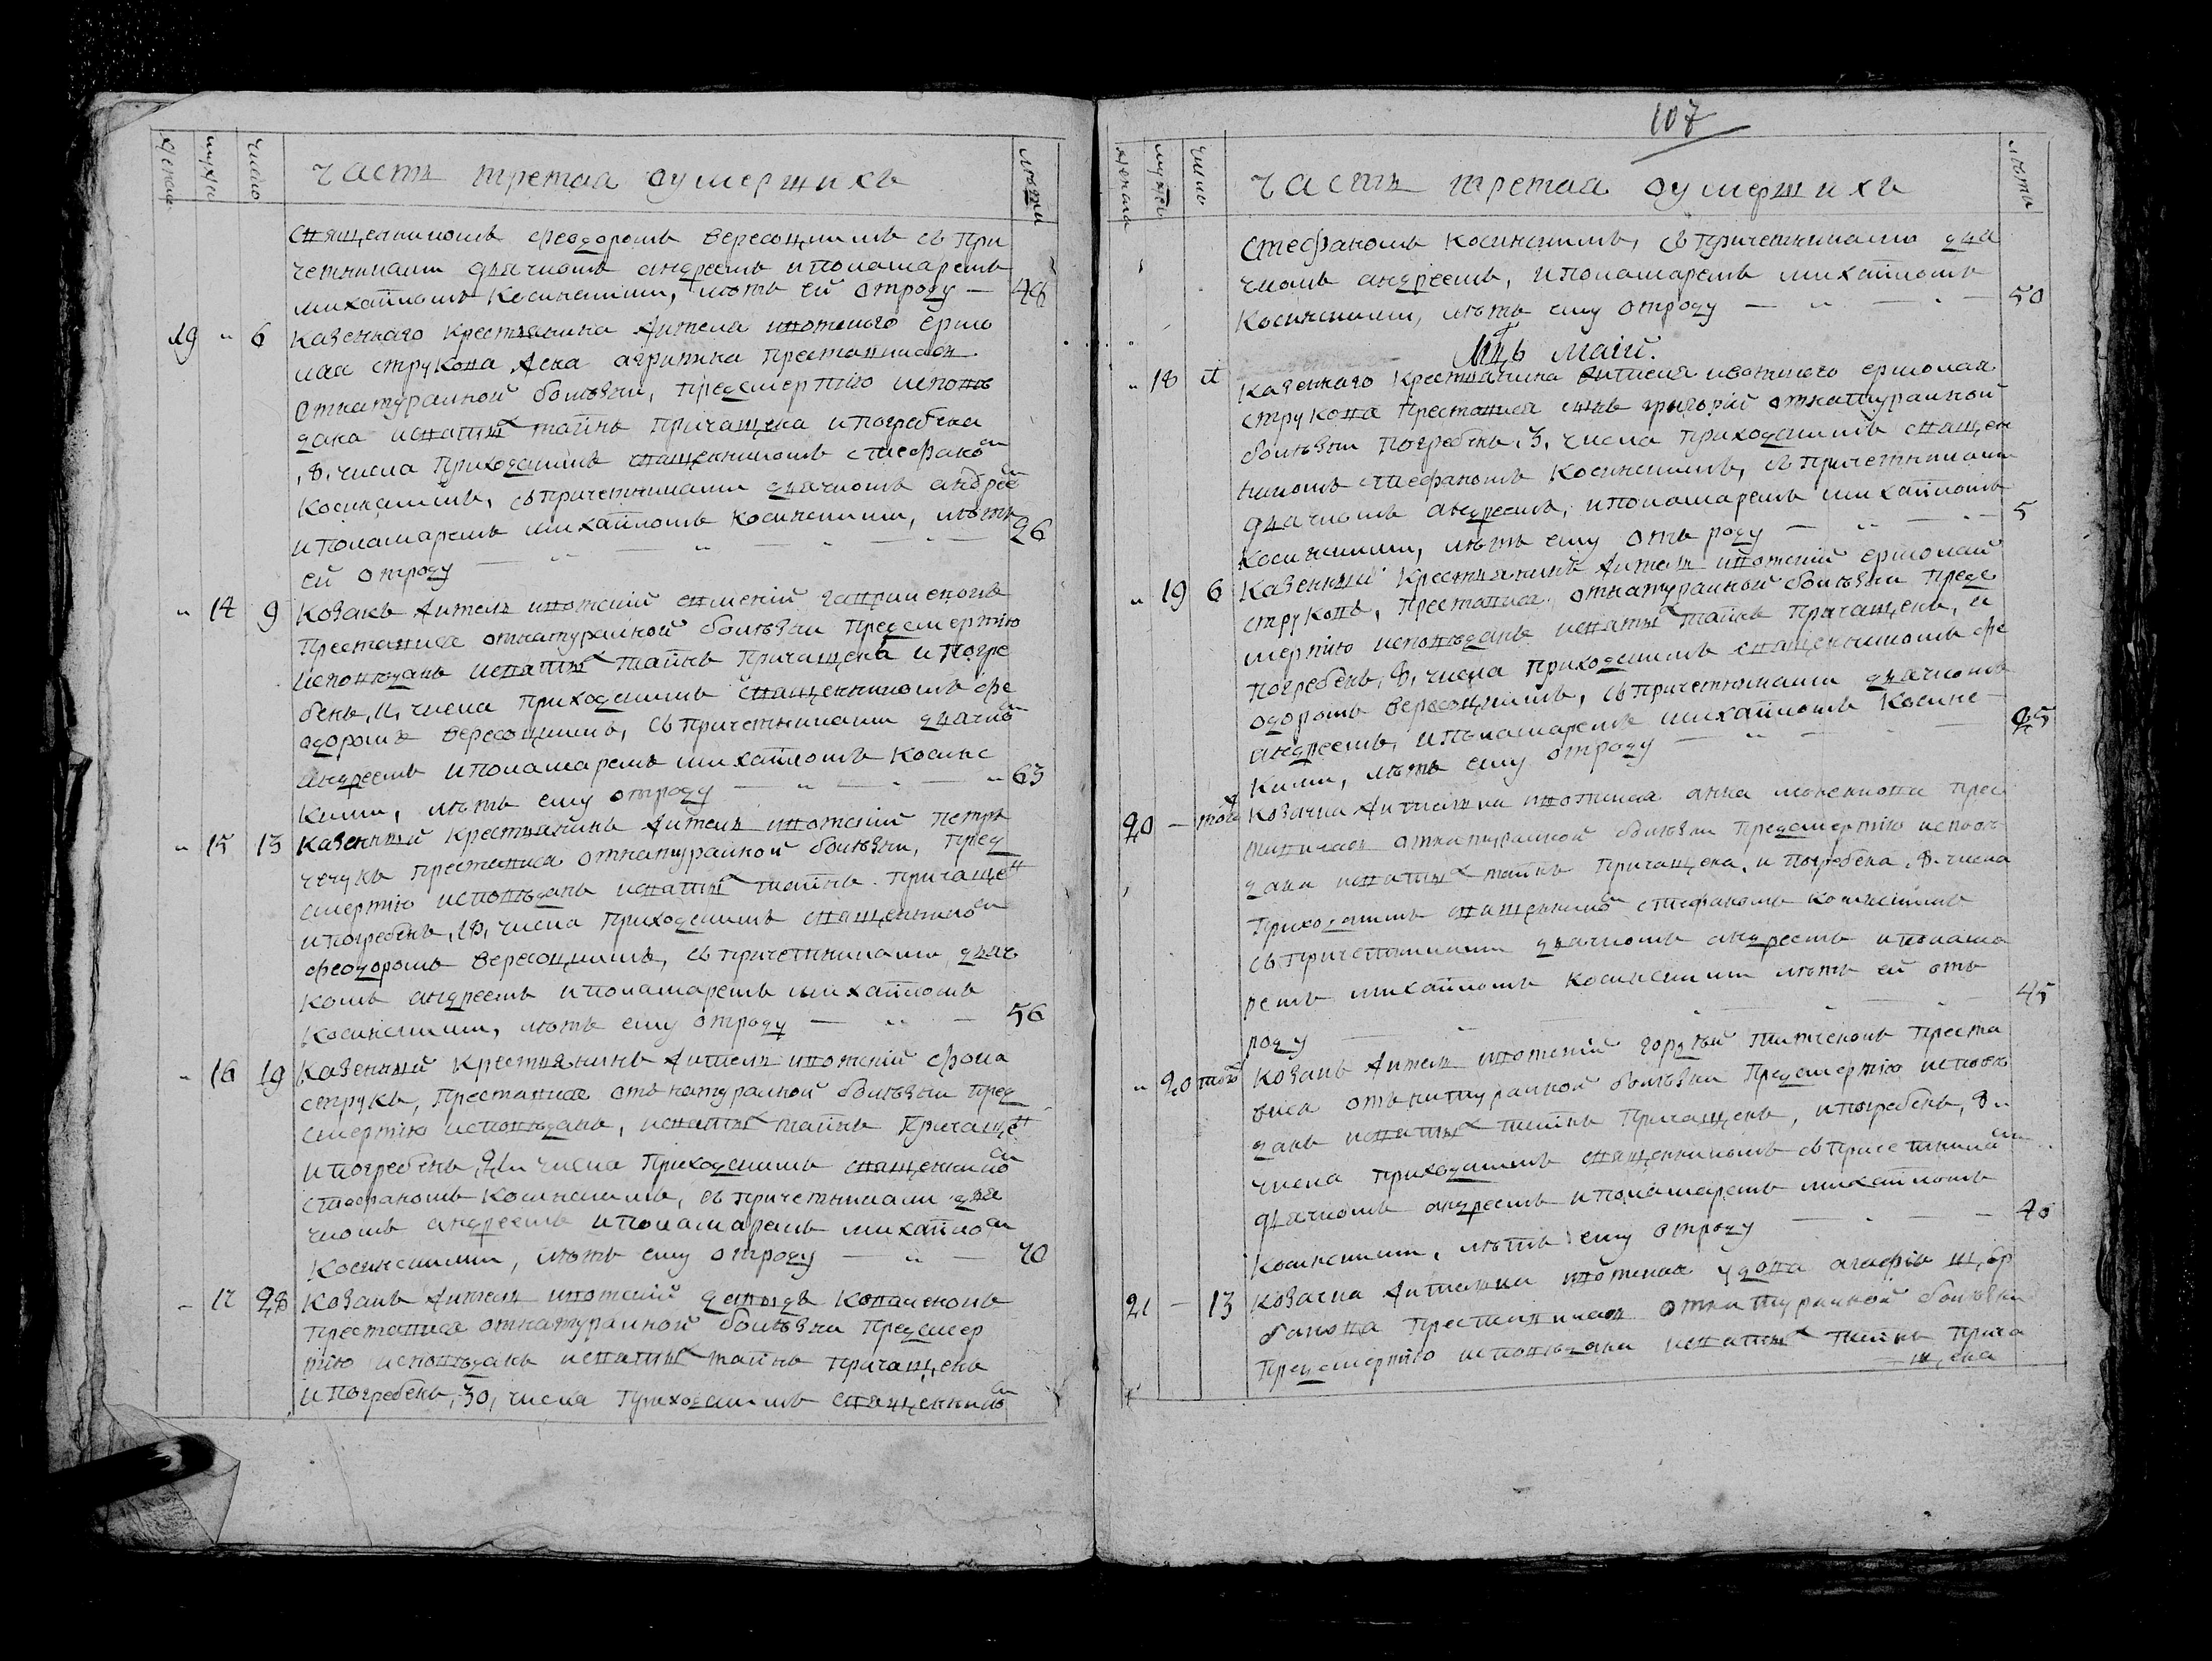 женска
мужеска
число
часть третая оумершихъ
лѣта
священникомъ феодоромъ вересоцкимъ съ при
четниками дьячкомъ андреемъ ипономаремъ
михайломъ Косинскими, лѣтъ ей отроду — 48
19 " 6 казеннаго крестьянина жителя ивотского ермо
лая струкова жена агрипина преставилася
отнатуралной болѣзни, предсмертію исповѣ
дана исвятых тайнъ причащена ипогребена
,8, числа приходскимъ священникомъ стефаном
Косинскимъ, съ причетниками дьячкомъ андрее
ипономаремъ михайломъ Косинскими, лѣтъ
ей отроду — " — " — " — 26
" 14 9 Козакъ житель ивотский
преставися отнатуралной болѣзни предсмертію
исповѣданъ исвятых тайнъ причащенъ и погре
бенъ, 11, числа приходскимъ священникомъ фе
одоромъ вересоцкимъ, съ причетниками дьячко
андреемъ ипономаремъ михайломъ Косинс
кими, лѣтъ ему отроду — " — " 63
" 15 13 казенный крестьянинъ житель ивотский петръ
чечукъ преставися отнатуралной болѣзни, пред
смертію исповѣданъ исвятых тайнъ причаще
ипогребенъ, числа приходскимъ священнико
феодоромъ вересоцкимъ, съ причетниками дьяч
комъ андреемъ ипономаремъ михайломъ
Косинскими, лѣтъ ему отроду — " — 56
" 16 19 казенный крестьянинъ житель ивотский фома
струкъ, преставися отънатуралной болѣзни пред
смертію исповѣданъ, исвятых тайнъ причаще
ипогребенъ, 21, числа приходскимъ священнико
стефаномъ Косинскимъ, съ причетниками дья
чкомъ андреемъ ипономаремъ михайло
Косинскими, лѣтъ ему отроду — " — 70
" 17 28 козакъ житель ивотский давыдъ
преставися отнатуралной болѣзни предсмер
тію исповѣданъ исвятых тайнъ причащенъ
ипогребенъ, 30, числа приходскимъ священнико
107
женска
мужеска
число
часть третая оумершихъ
лѣта
стефаномъ косинскимъ, съ причетниками дья
чкомъ андреемъ, ипономаремъ михайломъ
Косинскими, лѣтъ ему отроду — " — 50
Мцъ маій.
" 18 1 казеннаго крестьянина жителя ивотского ермолая
струкова преставися сынъ григорій отнатуралной
болѣзни погребенъ, 3, числа приходскимъ священ
никомъ стефаномъ Косинскимъ, съ причетниками
дьячкомъ андреемъ, ипономаремъ михайломъ
косинскими, лѣтъ ему отъ роду — " — 5
" 19 6 казенный крестьянинъ житель ивотский ермолай
струковъ, преставися отнатуралной болѣзни предс
мертію исповѣданъ исвятых тайнъ причащенъ, и
погребенъ, 8, числа приходскимъ священникомъ фе
одоромъ вересоцкимъ, съ причетниками дьячкомъ
андреемъ, ипономаремъ михайломъ Косинс
кими, лѣтъ ему отроду — " — 25
20 — того козачка жителка ивотская анна прес
тавилася отнатуралной болѣзни предсмертію исповѣ
дана исвятых тайнъ причащена, и погребена, 8, числа
приходскимъ священнико стефаномъ косинскимъ
съ причетниками дьячкомъ андреемъ ипонама
ремъ михайломъ косинскими лѣтъ ей отъ
роду — " — " 45
" 20 того козакъ житель ивотский гордѣй преста
вися отънатуралной болѣзни предсмертію исповѣ
данъ исвятых тайнъ причащенъ, ипогребенъ, 8,
числа приходскимъ священникомъ съ причетника
дьячкомъ андреемъ ипономаремъ михайломъ
косинскими, лѣтъ ему отроду — 40
21 — 13 козачка жителка ивотская вдова агафія щер
бакова преставилася отнатуралной болѣзни
предсмертію исповѣдана исвятых тайнъ прича
щена